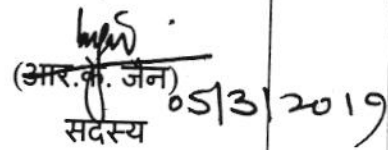 (आर.के. जैन) 05/3/2019
सदस्य